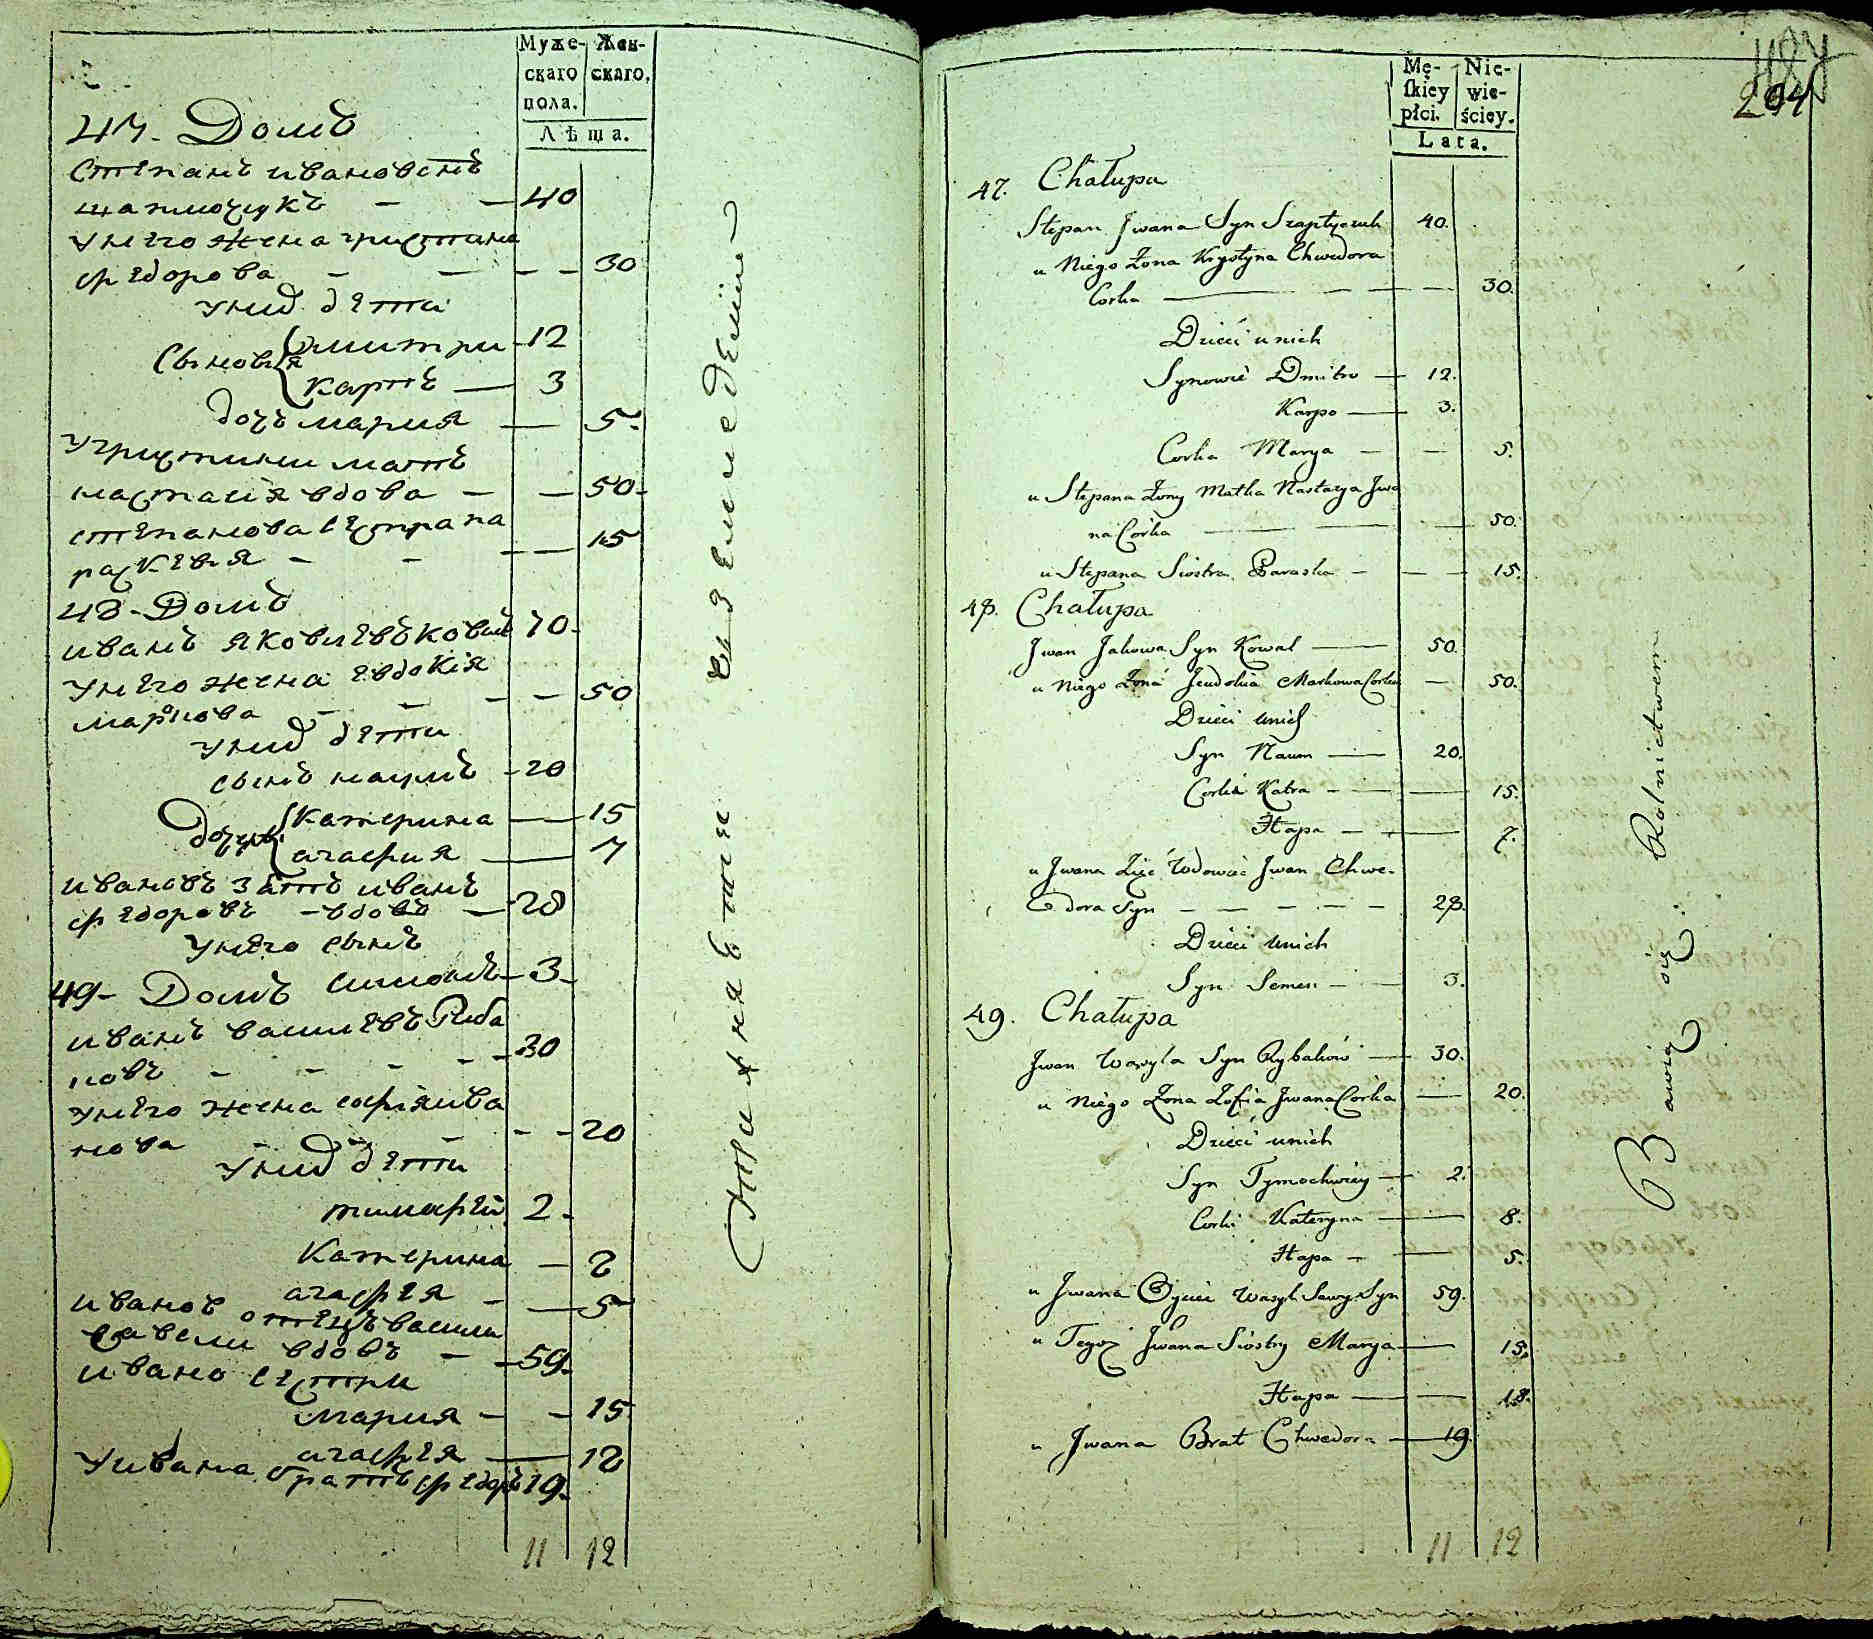 Муже-
скаго
пола.
Жен-
скаго.
Лѣта.
47. Домъ
Степанъ ивановснъ
шапточукъ - - 40
унего жена христина
федорова - - - - 30
уних дети
Сыновя дмитри 12
карпъ - 3
дочъ мария - 5.
Ухристини мать
настасія вдова - - 50.
степанова сестра па
раскевия - - - 15
48. Домъ
иванъ яковлевъ ковал 70.
унего жена евдокія
маркова - - - - 50
уних дети
сынъ наумъ - 20
дочери катерина - 15
агафия - 7
ивановъ зять иванъ
федоровъ - вдовъ - 28
унего сынъ
симонъ - 3.
49. Домъ
иванъ васильевъ Риба
ковъ - - - - - 30
унего жена софія ива
нова - - - - - 20
уних дети
тимофей 2.
Катерина - 8
агафея - 5
иванов отецъ василь
савели вдовъ - - 59.
ивано сестри
мария - - 15
агафея - 18
Уивана братъ федоръ 19.
11 12
Симянеты ѣ земледелие
Mę-
skiey
płci.
Nie-
wie-
ściey.
Lata.
487
204
47. Chałupa
Stepan Jwana Syn Szaptyczuk 40.
u Niego Żona Krystyna Chwedora
Corka - - - 30.
Dzieci unich
Synowie Dmitro - 12.
Karpo - 3.
Corka Marya - - 5.
u Stepana Żony Matka Nastazya Jwa
na Corka - - - 50.
u Stepana Siostra Paraska - - - 15.
48. Chałupa
Jwan Jakowa Syn Kowal - 50.
u Niego Żona Jeudokia Markowa Corka - 50.
Dzieci unich
Syn Naum - 20.
Corka Katra - - 15.
Hapa - - 7.
u Jwana Zięć Wdowiec Jwan Chwe-
dora Syn - - - - - 28.
Dzieci unich
Syn Semen - 3.
49. Chałupa
Jwan Wasyla Syn Rybaków - 30.
u Niego Żona Zofia Jwana Corka - 20.
Dzieci unich
Syn Tymochwiey - 2.
Corki Kateryna - 8.
Hapa - - 5.
u Jwana Oyciec Wasyl Sawy Syn 59.
u Tegoż Jwana Siostry Marya - 15.
Hapa - - 18.
u Jwana Brat Chwedora - 19.
11 12
Bawią się Rolnictwem